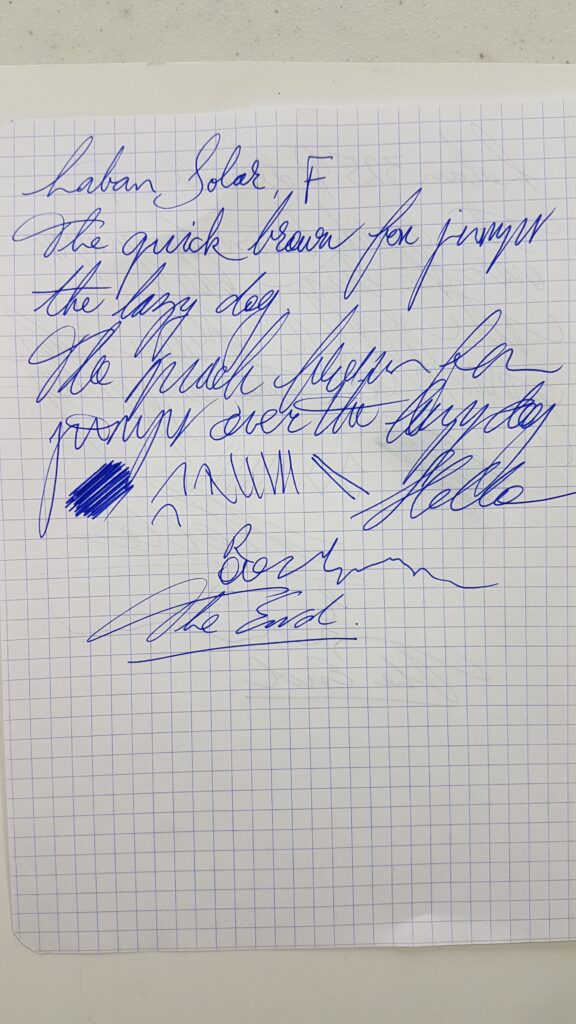 Laban Solar, F
The quick brown fox jumps
the lazy dog
The quick brown fox
jumps over the lazy dog
Hello
The End.